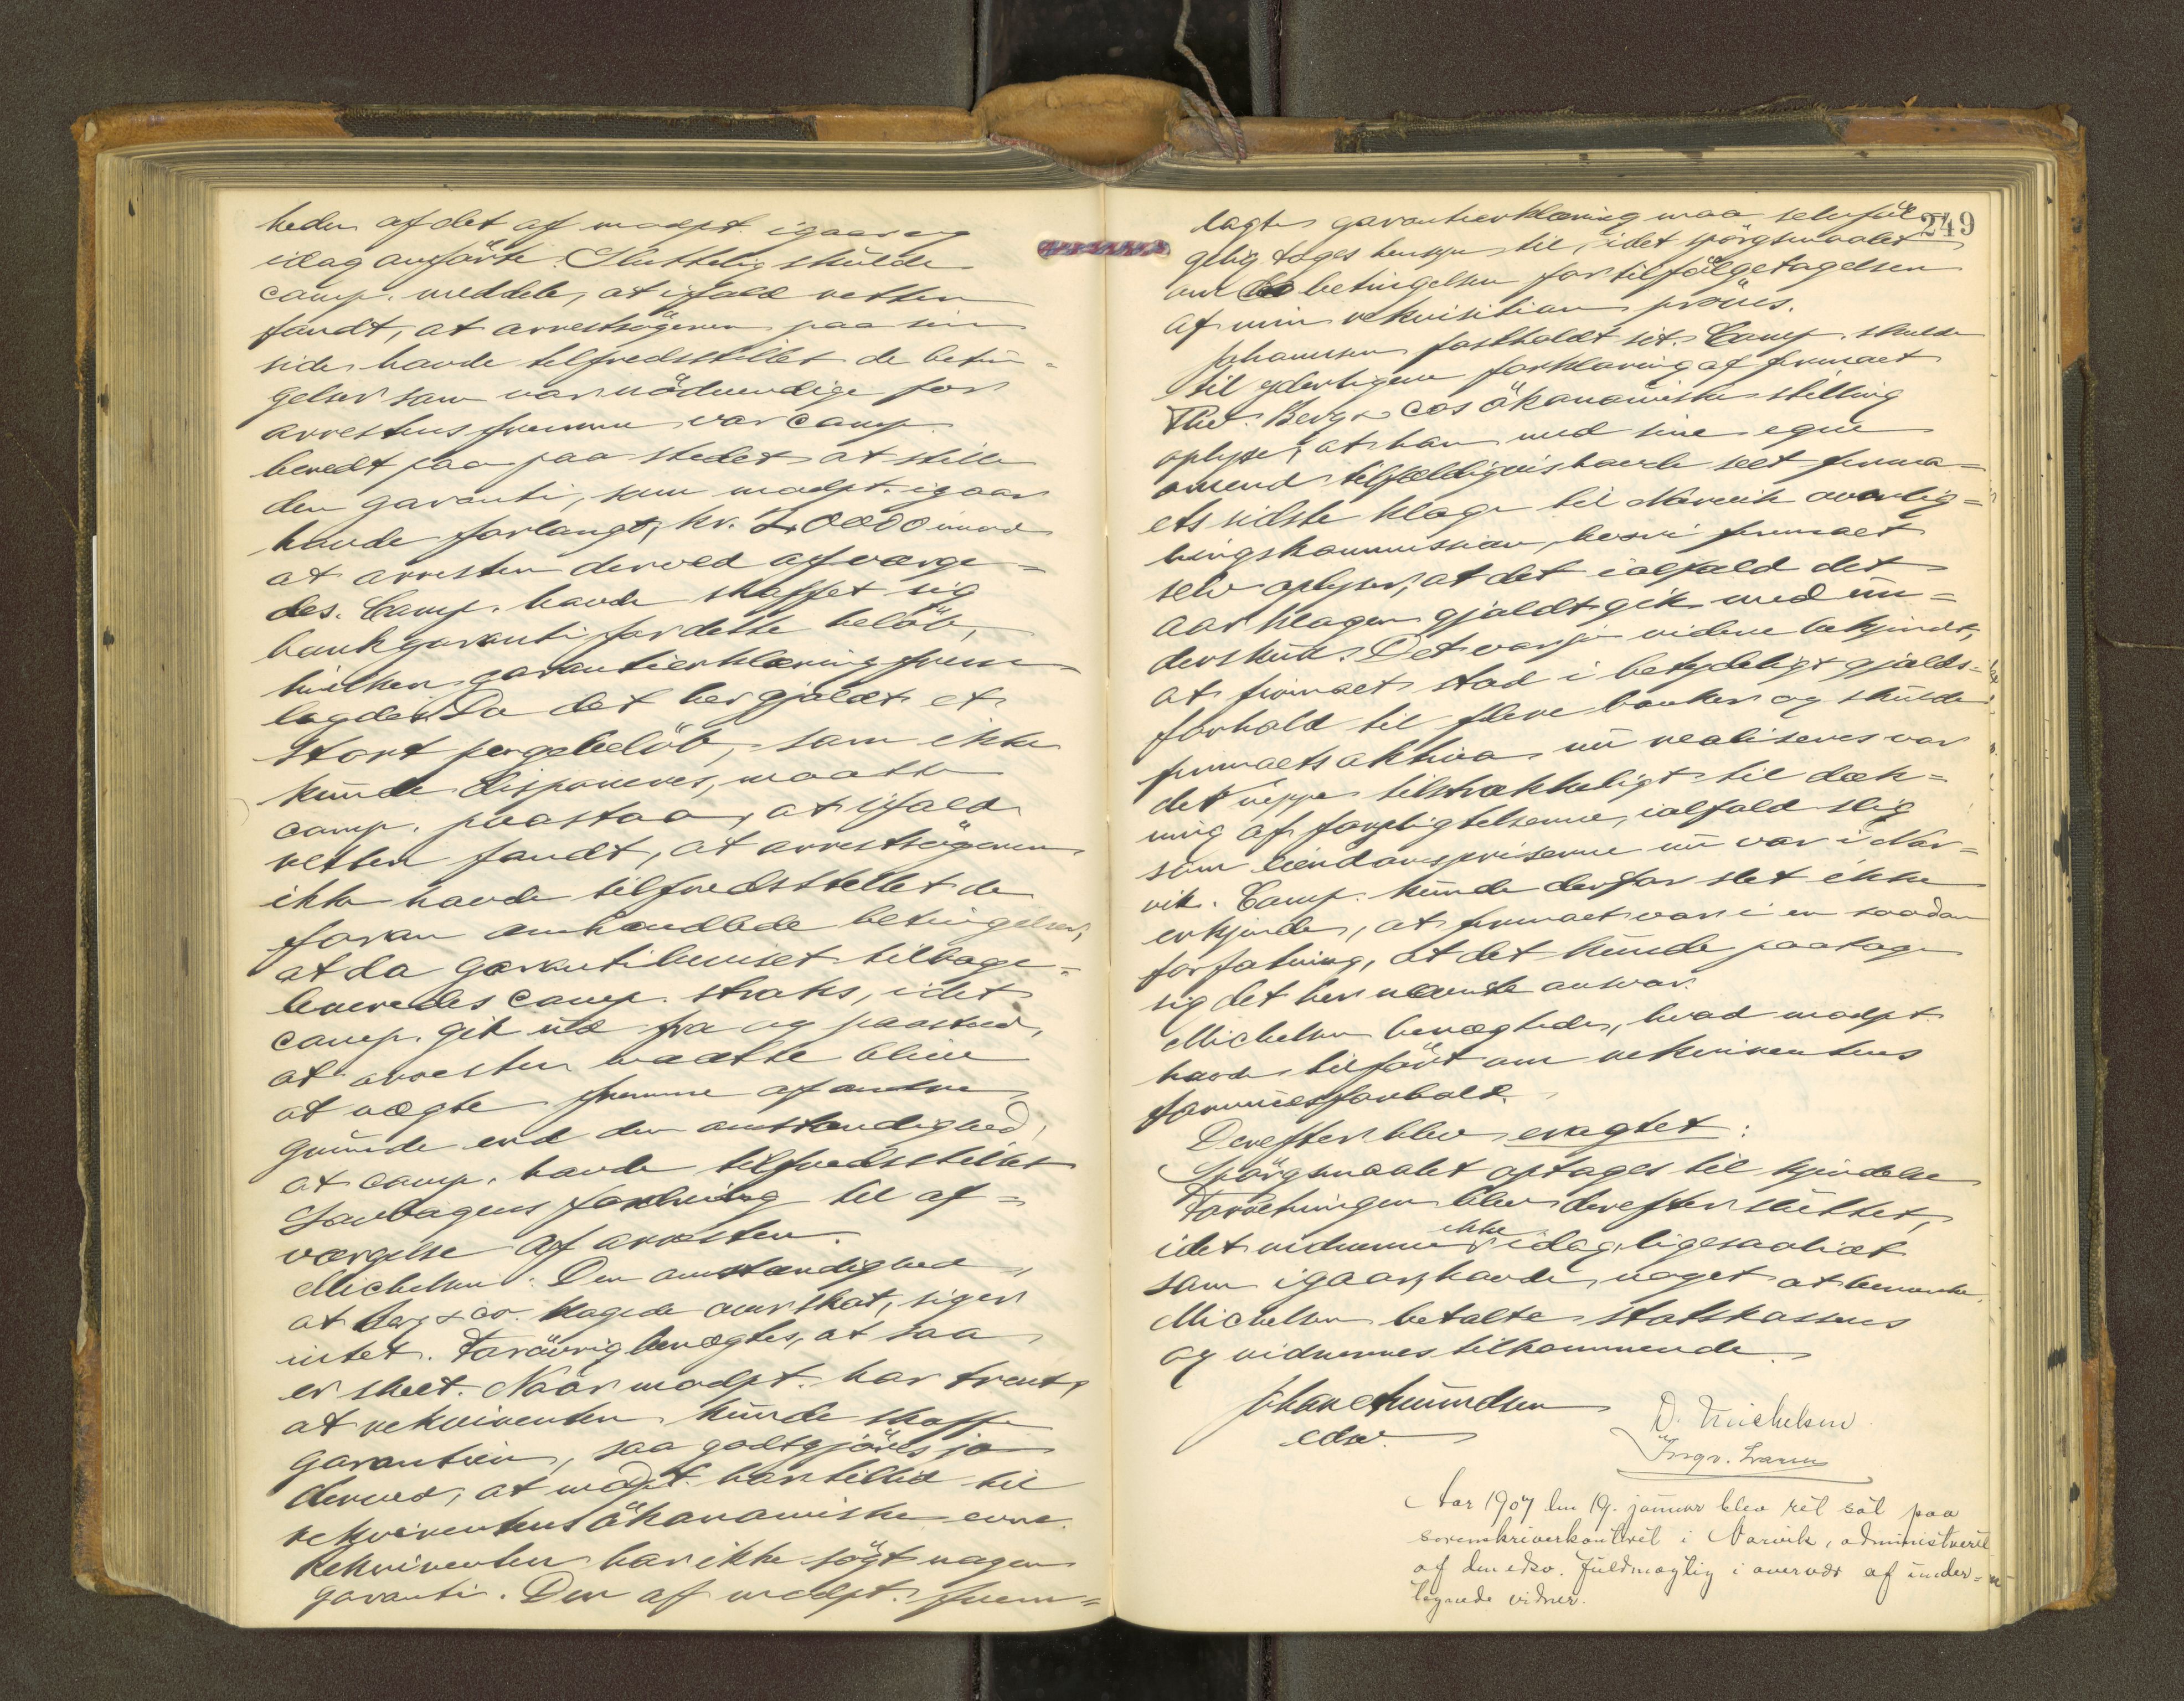 heden af det af modpt. igaar og
idag anförte. Sluttelig skulde
comp. meddele, at ifald retten
fandt, at arrestsögeren paa sin
side havde tilfredsstillet de betin=
gelser som var nödvendige for
arrestens fremme var comp.
beredt paa paa stedet at stille
den garanti, som modpt. igaar
havde forlangt, kr. 20000 imod
at arresten derved afværge=
des. Comp. havde skaffet sig
bankgaranti for dette belöb,
hvilken garantierklæring frem
lagdes. Da det her gjaldt et
stort pengebelöb, som ikke
kunde disponeres, maatte
comp. paastaa, at ifald
retten fandt, at arrestsögeren
ikke havde tilfredsstillet de
foran omhandlede betingelser,
at da garantibeviset tilbage=
leveredes comp. straks, idet
comp. gik ud fra og paastod,
at arresten maatte blive
at nægte fremme af andre
grunde end den omstændighed,
at comp. havde tilfredsstillet
Lovbogens fordring til af=
værgelse af arresten.
Michelsen: Den omstændighed,
at Berg & co. klagede over skat, siger
intet. Forövrig benægtes, at saa
er skeet. Naar modpt. har troet,
at rekvirenten kunde skaffe
garantien, saa godtgjöres jo
derved, at modpt. har tillid til
rekvirentens ökonomiske evne.
Rekvirenten har ikke sögt nogen
garanti. Den af modpt. frem=
249
lagte garantierklæring maa selvföl
gelig tages hensyn til, idet spörgsmaalet
om betingelsen for tilfölgetagelsen
af min rekvisition pröves.
Johannsen fastholdt sit. Comp. skulde
til yderligere forklaring af firmaet
Thv. Berg & Cos ökonomiske stilling
oplyse, at han med sine egne
öiend tilfældigvis havde seet firma=
ets sidste klage til Narvik overlig=
ningskommission, hvori firmaet
selv oplyser, at det ialfald det
aar klagen gjaldt gik med un=
derskud. Det var jo videre bekjendt,
at firmaet stod i betydeligt gjælds=
forhold til flere banker og skulde
firmaets aktiva nu realiseres var
det neppe tilstrækkeligt til dæk=
ning af forpligtelserne, ialfald slig
som eiendomspriserne nu var i Nar=
vik. Comp. kunde derfor slet ikke
erkjende, at firmaet var i en saadan
forfatning, at det kunde paatage
sig det her nævnte ansvar.
Michelsen benægtede, hvad modpt.
havde tilfört om rekvirentens
formuesforhold.
Derefter blev eragtet:
Spörgsmaalet optages til kjendelse
Forretningen blev derefter sluttet,
idet vidnerne ikke idag, ligesaalidt
som igaar, havde noget at bemerke.
Michelsen betalte statskassens
og vidnernes tilkommende.
Johan Amundsen
edsv.
D. Michelsen.
Ingv. Larsen
Aar 1907 den 19. januar blev ret sat paa
sorenskriverkontoret i Narvik, administreret
af den edsv. fuldmægtig i overvær af under=
tegnede vidner.